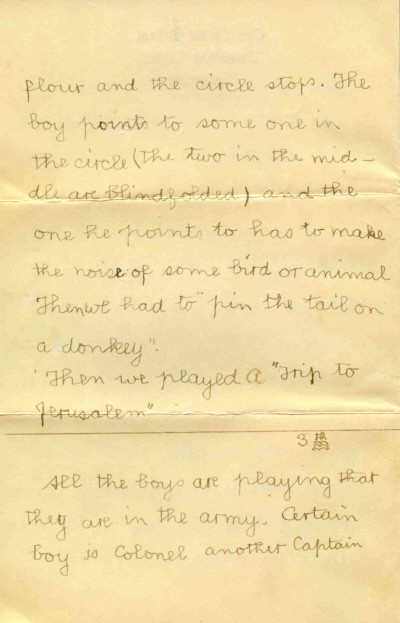 flour and the circle stops. The
boy points to some one in
the circle (the two in the mid-
dle are blindfolded) and the
one he points to has to make
the noise of some bird or animal
Then we had to "pin the tail on
a donkey".
Then we played a "Trip to
Jerusalem"
3
All the boys are playing that
they are in the army. Certain
boy is Colonel another Captain